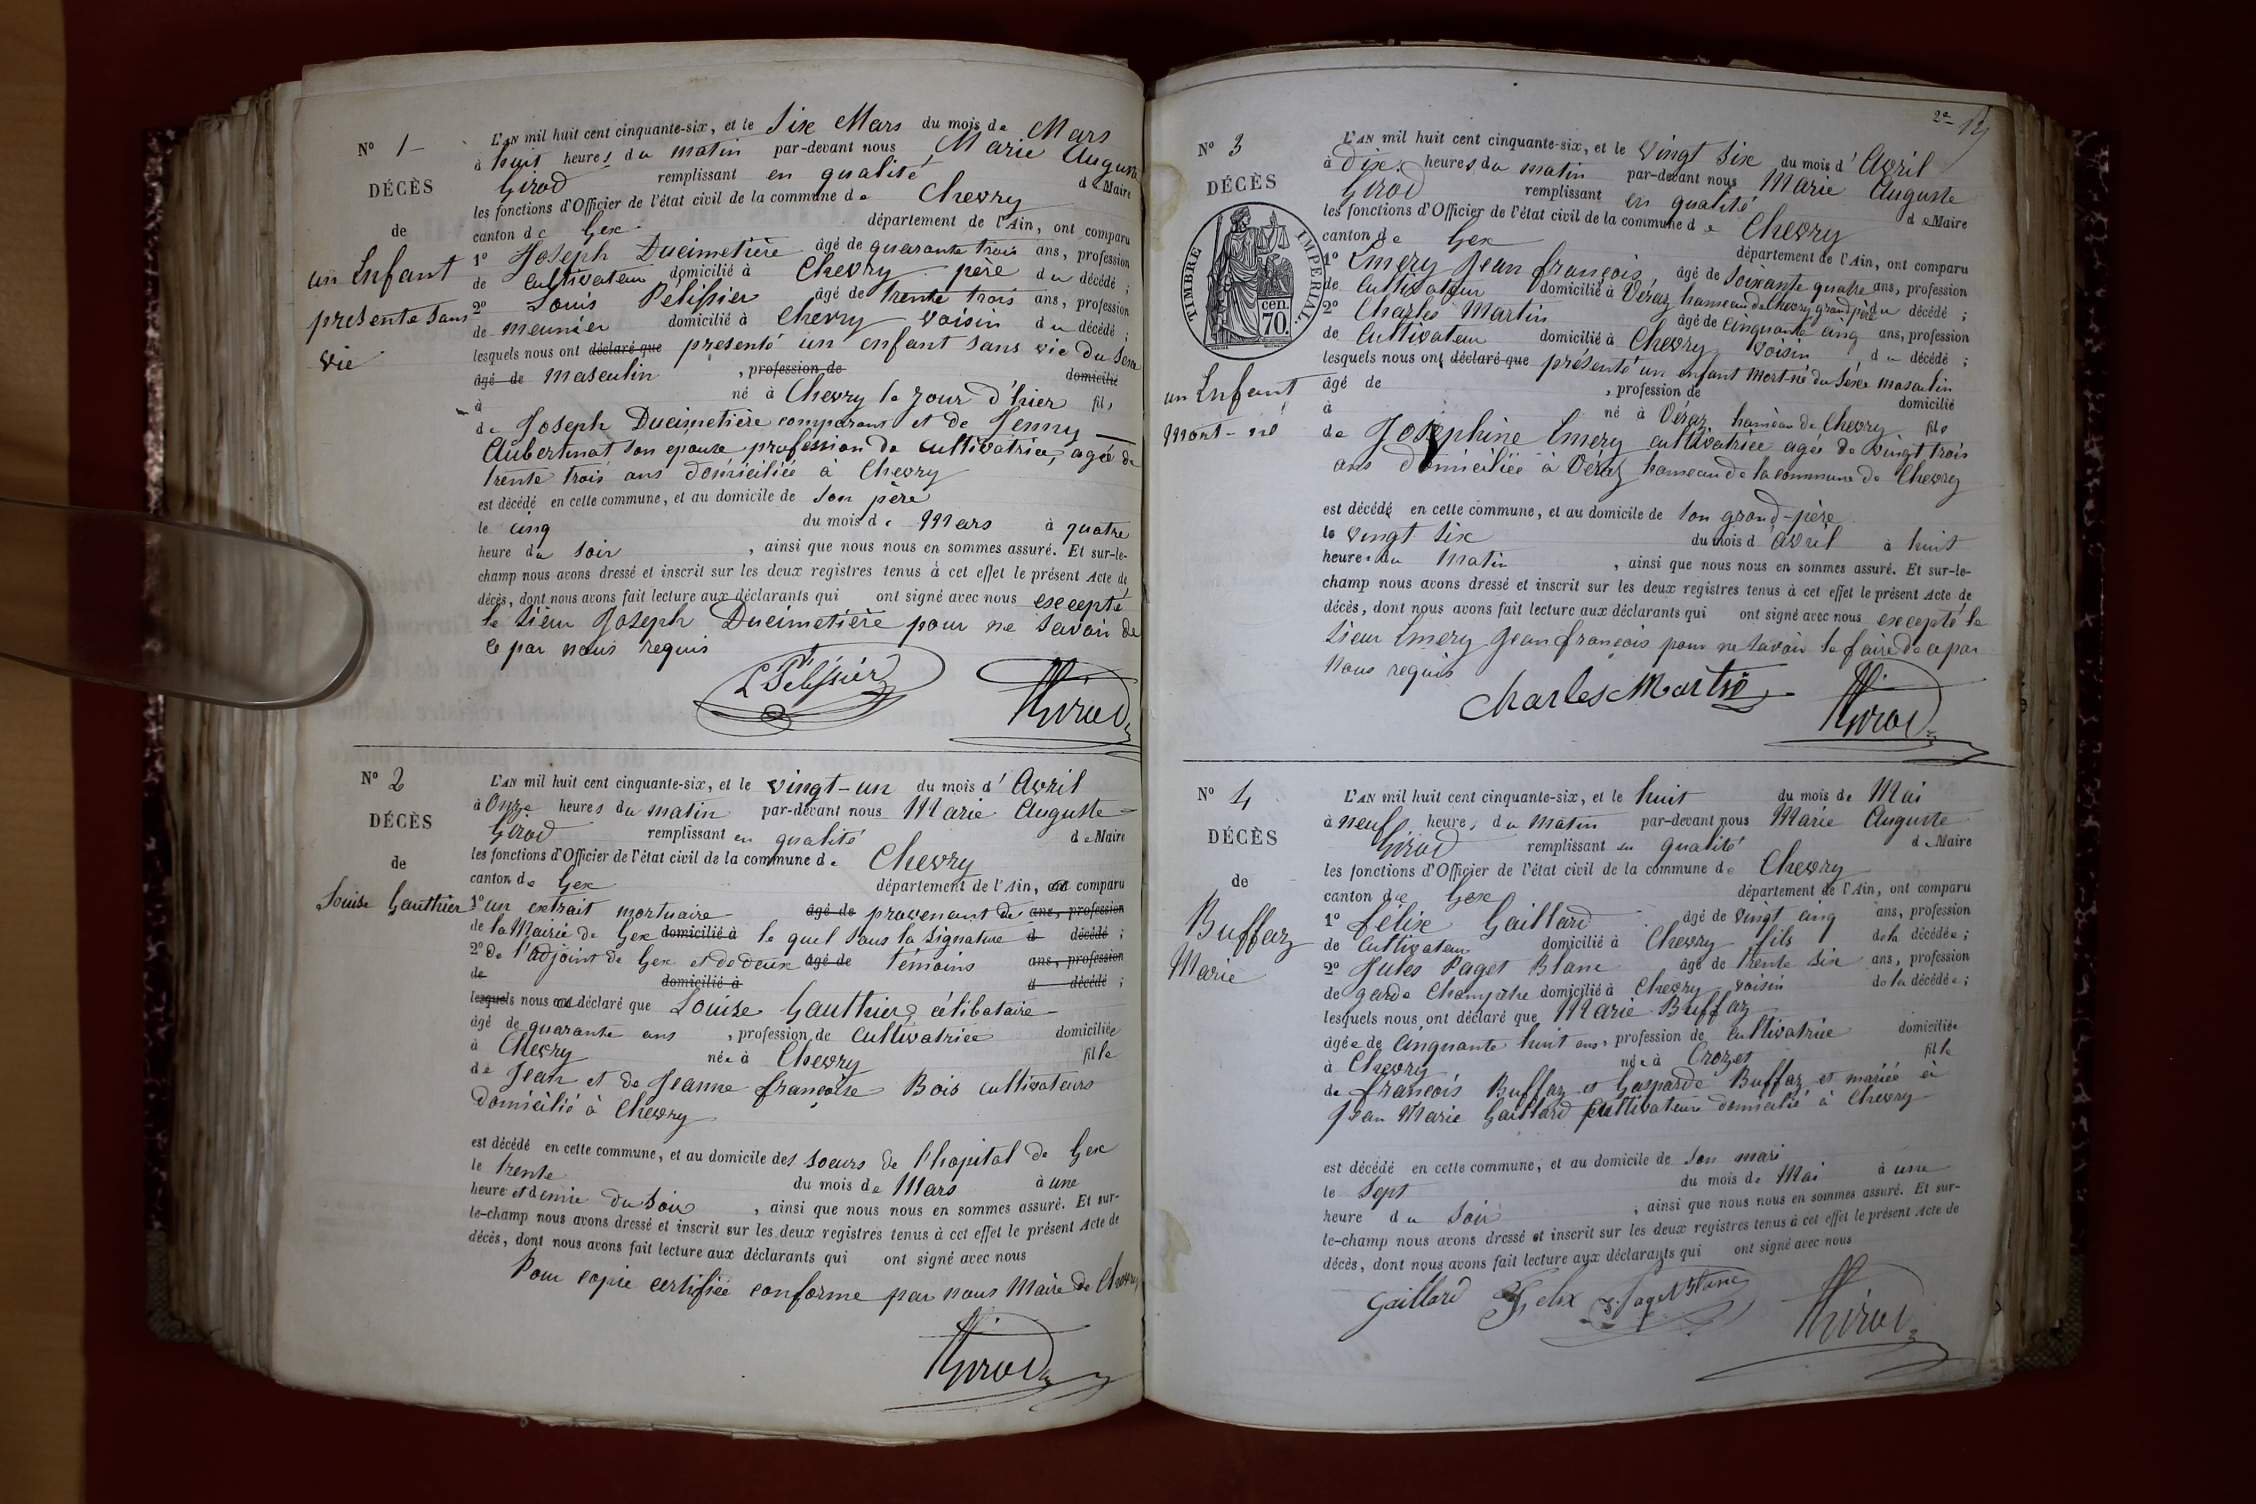 N° 1
DÉCÈS
de
un Enfant
présenté sans
vie
L'AN mil huit cent cinquante-six, et le Six Mars du mois de Mars
à huit heures du matin par-devant nous Marie Auguste
Girod remplissant en qualité de Maire
les fonctions d'Officier de l'état civil de la commune de Chevry
canton de Gex département de l'Ain, ont comparu
1° Joseph Ducimetière âgé de quarante trois ans, profession
de cultivateur domicilié à Chevry père du décédé ;
2° Louis Pelissier âgé de trente trois ans, profession
de meunier domicilié à Chevry voisin du décédé ;
lesquels nous ont déclaré que presenté un enfant sans vie du Sexe
âgé de masculin , profession de domicilié
à né à Chevry le jour d'hier fils
de Joseph Ducimetière comparant et de Jenny
Aubertinat son epouse profession de cultivatrice, agée de
trente trois ans domiciliée à Chevry
est décédé en cette commune, et au domicile de son père
le cinq du mois de Mars à quatre
heure du soir , ainsi que nous nous en sommes assuré. Et sur-le-
champ nous avons dressé et inscrit sur les deux registres tenus à cet effet le présent Acte de
décès, dont nous avons fait lecture aux déclarants qui ont signé avec nous excepté
le Sieur Joseph Ducimetière pour ne savoir de
ce par nous requis
L Pelissier Girod
N° 2
DÉCÈS
de
Louise Gauthier
L'AN mil huit cent cinquante-six, et le vingt-un du mois d' Avril
à Onze heures du matin par-devant nous Marie Auguste
Girod remplissant en qualité de Maire
les fonctions d'Officier de l'état civil de la commune de Chevry
canton de Gex département de l'Ain, comparu
1° un extrait mortuaire âgé de provenant de ans, profession
de la Mairie de Gex domicilié à le quel sous la signature d décédé ;
2° de l'adjoint de Gex et de deux âgé de témoins ans, profession
de domicilié à d décédé ;
lesquels nous déclaré que Louise Gauthier célibataire
âgé de quarante ans , profession de cultivatrice domiciliée
à Chevry née à Chevry fille
de Jean et de Jeanne françoise Bois cultivateurs
domicilié à Chevry
est décédé en cette commune, et au domicile des soeurs de l'hopital de Gex
le trente du mois de Mars à une
heure et demie du soir , ainsi que nous nous en sommes assuré. Et sur-
le-champ nous avons dressé et inscrit sur les deux registres tenus à cet effet le présent Acte de
décès, dont nous avons fait lecture aux déclarants qui ont signé avec nous
Pour copie certifiée conforme par nous Maire de Chevry
Girod
2e
N° 3
DÉCÈS
TIMBRE IMPERIAL.
70. cen.
un Enfant
mort-né
L'AN mil huit cent cinquante-six, et le vingt six du mois d' Avril
à Dix heures du matin par-devant nous Marie Auguste
Girod remplissant en qualité de Maire
les fonctions d'Officier de l'état civil de la commune de Chevry
canton de Gex département de l'Ain, ont comparu
1° Emery Jean françois, âgé de soixante quatre ans, profession
de cultivateur domicilié à Véraz hameau de Chevry grand père du décédé ;
2° Charles Martin âgé de cinquante cinq ans, profession
de cultivateur domicilié à Chevry voisin du décédé ;
lesquels nous ont déclaré que présenté un enfant mort-né du Sexe masculin
âgé de , profession de domicilié
à né à Véraz hameau de Chevry fils
de Josephine Emery cultivatrice agée de vingt trois
ans domiciliée à Véraz hameau de la commune de Chevry
est décédé en cette commune, et au domicile de son grand-père
le vingt six du mois d' avril à huit
heures du matin , ainsi que nous nous en sommes assuré. Et sur-le-
champ nous avons dressé et inscrit sur les deux registres tenus à cet effet le présent Acte de
décès, dont nous avons fait lecture aux déclarants qui ont signé avec nous excepté le
Sieur Emery Jean françois pour ne savoir le faire de ce par
nous requis
Charles Martin Girod
N° 4
DÉCÈS
de
Buffaz
Marie
L'AN mil huit cent cinquante-six, et le huit du mois de Mai
à neufs heure, du matin par-devant nous Marie Auguste
Girod remplissant en qualité de Maire
les fonctions d'Officier de l'état civil de la commune de Chevry
canton de Gex département de l'Ain, ont comparu
1° félix Gaillard âgé de vingt cinq ans, profession
de cultivateur domicilié à Chevry fils de la décédée ;
2° Jules Paget Blanc âgé de trente six ans, profession
de garde Champêtre domicilié à Chevry voisin de la décédée ;
lesquels nous ont déclaré que Marie Buffaz
âgée de cinquante huit ans, profession de cultivatrice domiciliée
à Chevry née à Crozet fille
de françois Buffaz et Gasparde Buffaz et mariée à
Jean Marie Gaillard cultivateur domicilié à Chevry
est décédé en cette commune, et au domicile de son mari
le sept du mois de Mai à une
heure du soir , ainsi que nous nous en sommes assuré. Et sur-
le-champ nous avons dressé et inscrit sur les deux registres tenus à cet effet le présent Acte de
décès, dont nous avons fait lecture aux déclarants qui ont signé avec nous
Gaillard Felix J. Paget Blanc Girod